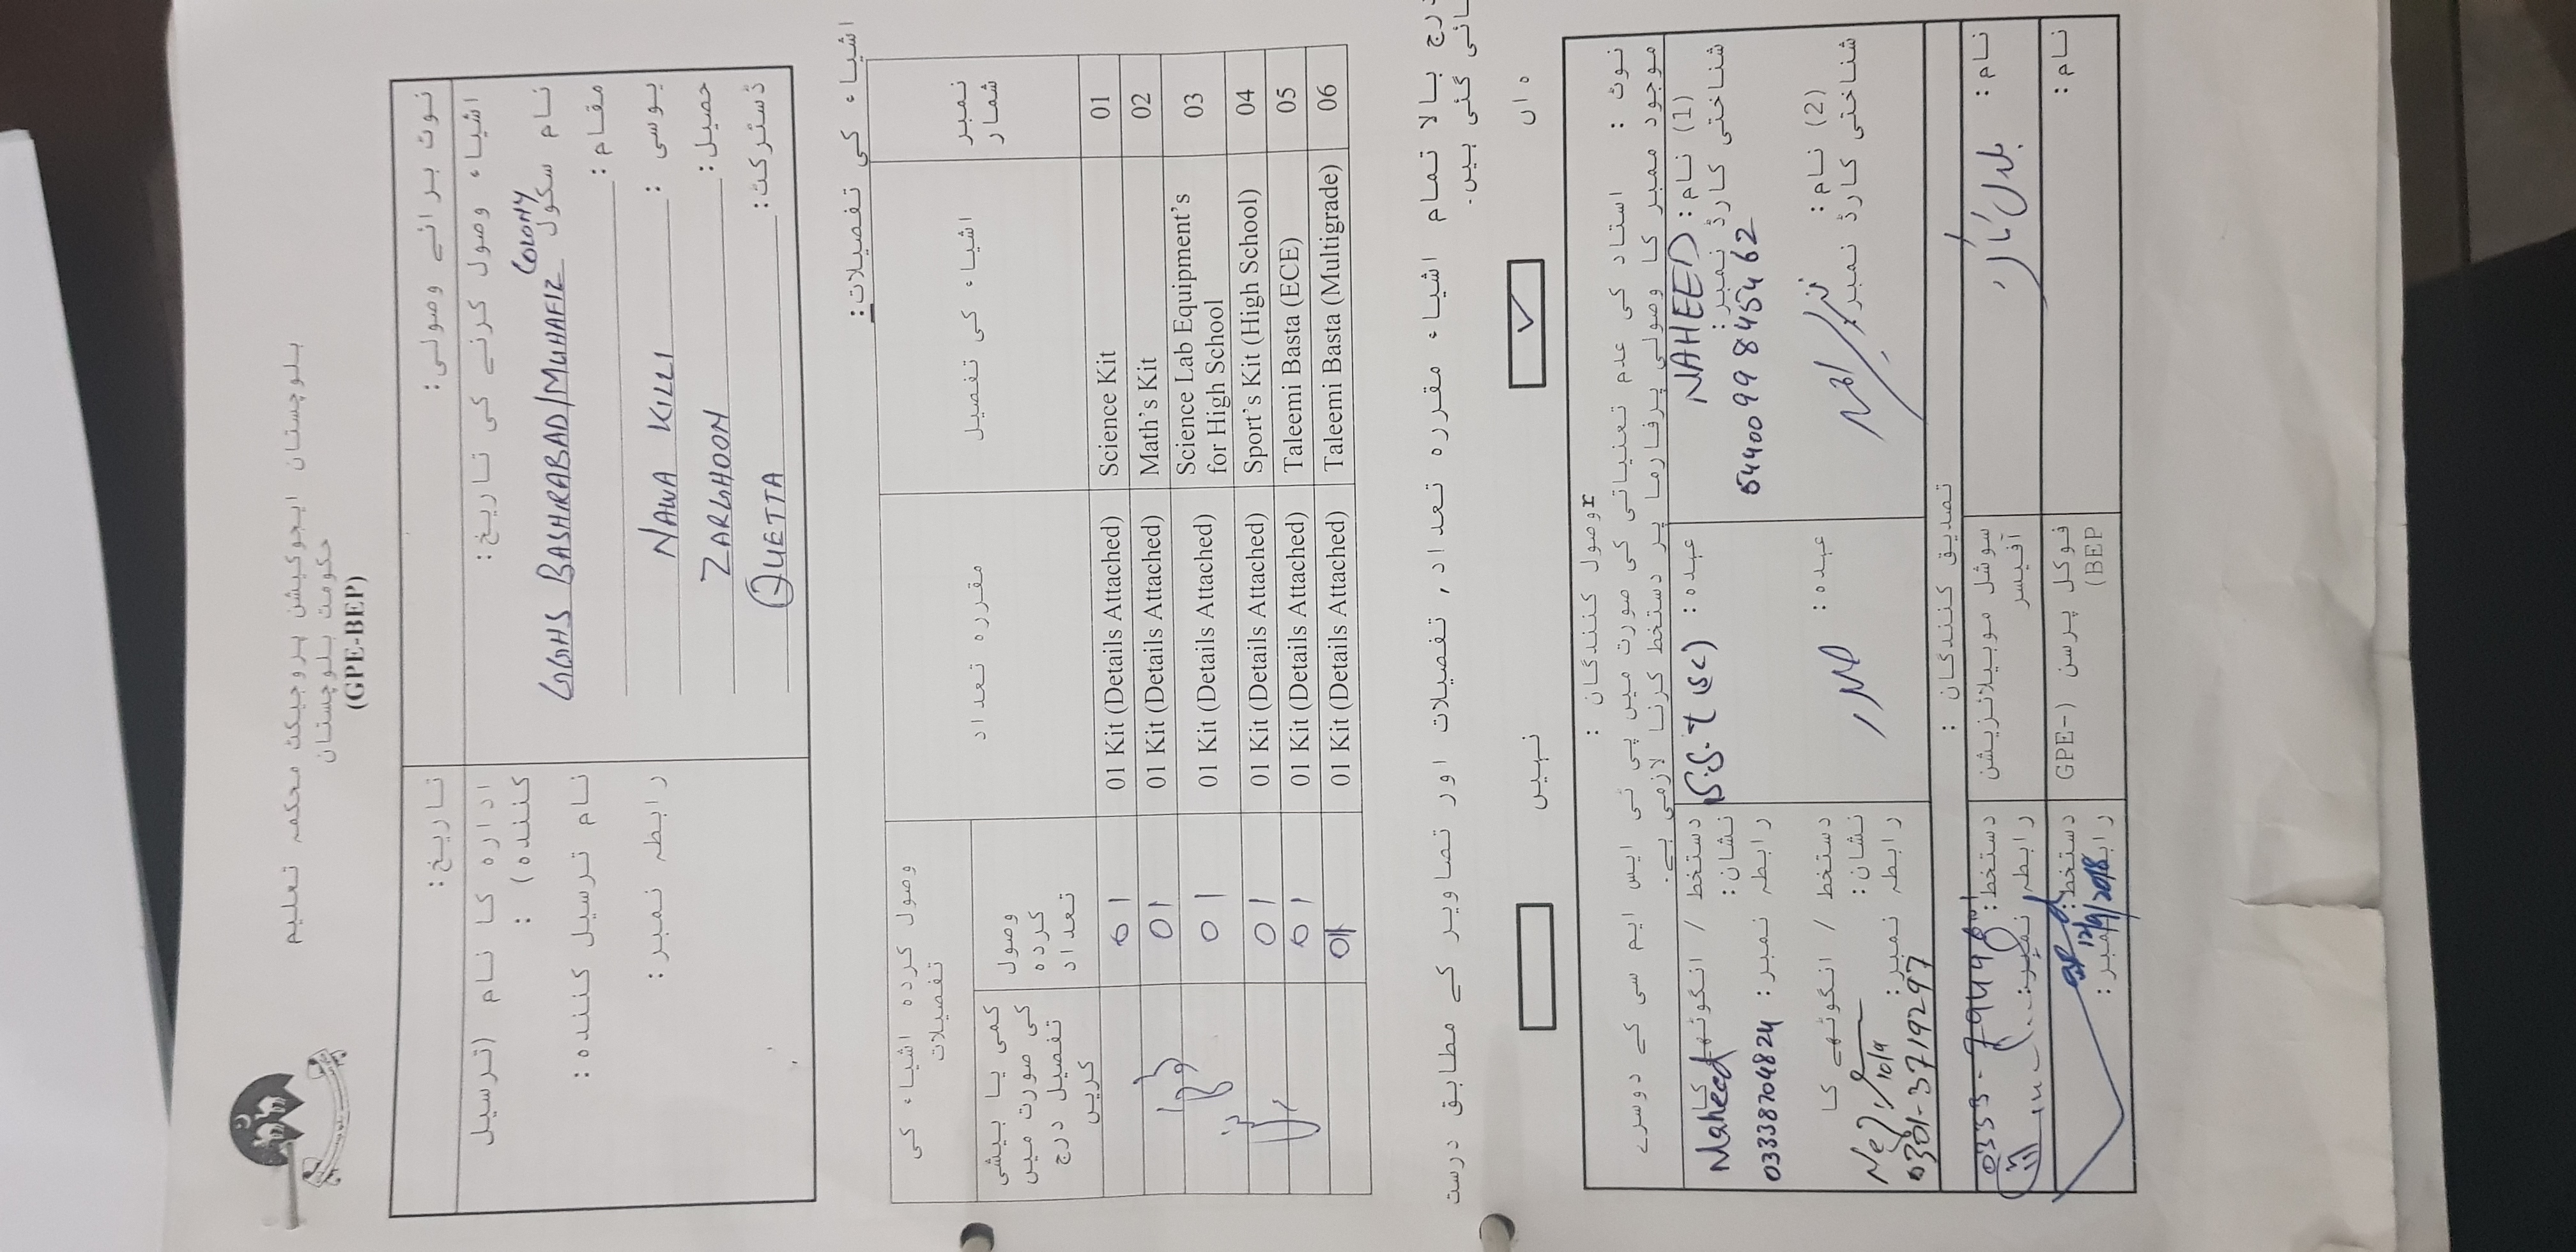 بلوچستان ایجوکیشن پروجیکٹ محکمہ تعلیم
حکومت بلوچستان
(GPE-BEP)
نوٹ برائے وصولی:
تاریخ:
اشیاء وصول کرنے کی تاریخ:
ادارہ کا نام (ترسیل کنندہ) :
نام سکول GGHS BASHIRABAD/MUHAFIZ COLONY
نام ترسیل کنندہ:
مقام:
یوسی : NAWA KILLI
رابطہ نمبر:
حصیل: ZARGHOON
ڈسٹرکٹ: QUETTA
اشیاء کی تفصیلات:
نمبر شمار
اشیاء کی تفصیل
مقررہ تعداد
وصول کردہ اشیاء کی تفصیلات
وصول کردہ تعداد
کمی یا بیشی کی صورت میں تفصیل درج کریں
01 Science Kit 01 Kit (Details Attached) 01
02 Math's Kit 01 Kit (Details Attached) 01
03 Science Lab Equipment's for High School 01 Kit (Details Attached) 01
04 Sport's Kit (High School) 01 Kit (Details Attached) 01
05 Taleemi Basta (ECE) 01 Kit (Details Attached) 01
06 Taleemi Basta (Multigrade) 01 Kit (Details Attached) 01
درج بالا تمام اشیاء مقررہ تعداد, تفصیلات اور تصاویر کے مطابق درست
پائی گئی ہیں.
ہاں
نہیں
وصول کنندگان :
نوٹ : استاد کی عدم تعنیاتی کی صورت میں پی ٹی ایس ایم سی کے دوسرے
موجود ممبر کا وصولی پرفارما پر دستخط کرنا لازمی ہے.
(1) نام: NAHEED
شناختی کارڈ نمبر:
54400 99 8454 62
عہدہ: S.S.T (Sc)
دستخط / انگوٹھے کا نشان: Naheed
رابطہ نمبر: 03338704824
(2) نام:
شناختی کارڈ نمبر:
عہدہ: صدر
دستخط / انگوٹھے کا نشان:
رابطہ نمبر:
0301-3719297
تصدیق کنندگان :
نام:
سوشل موبیلائزیشن آفیسر
دستخط:
رابطہ نمبر:
نام:
فوکل پرسن (GPE-BEP)
دستخط:
رابطہ نمبر:
12/9/2018